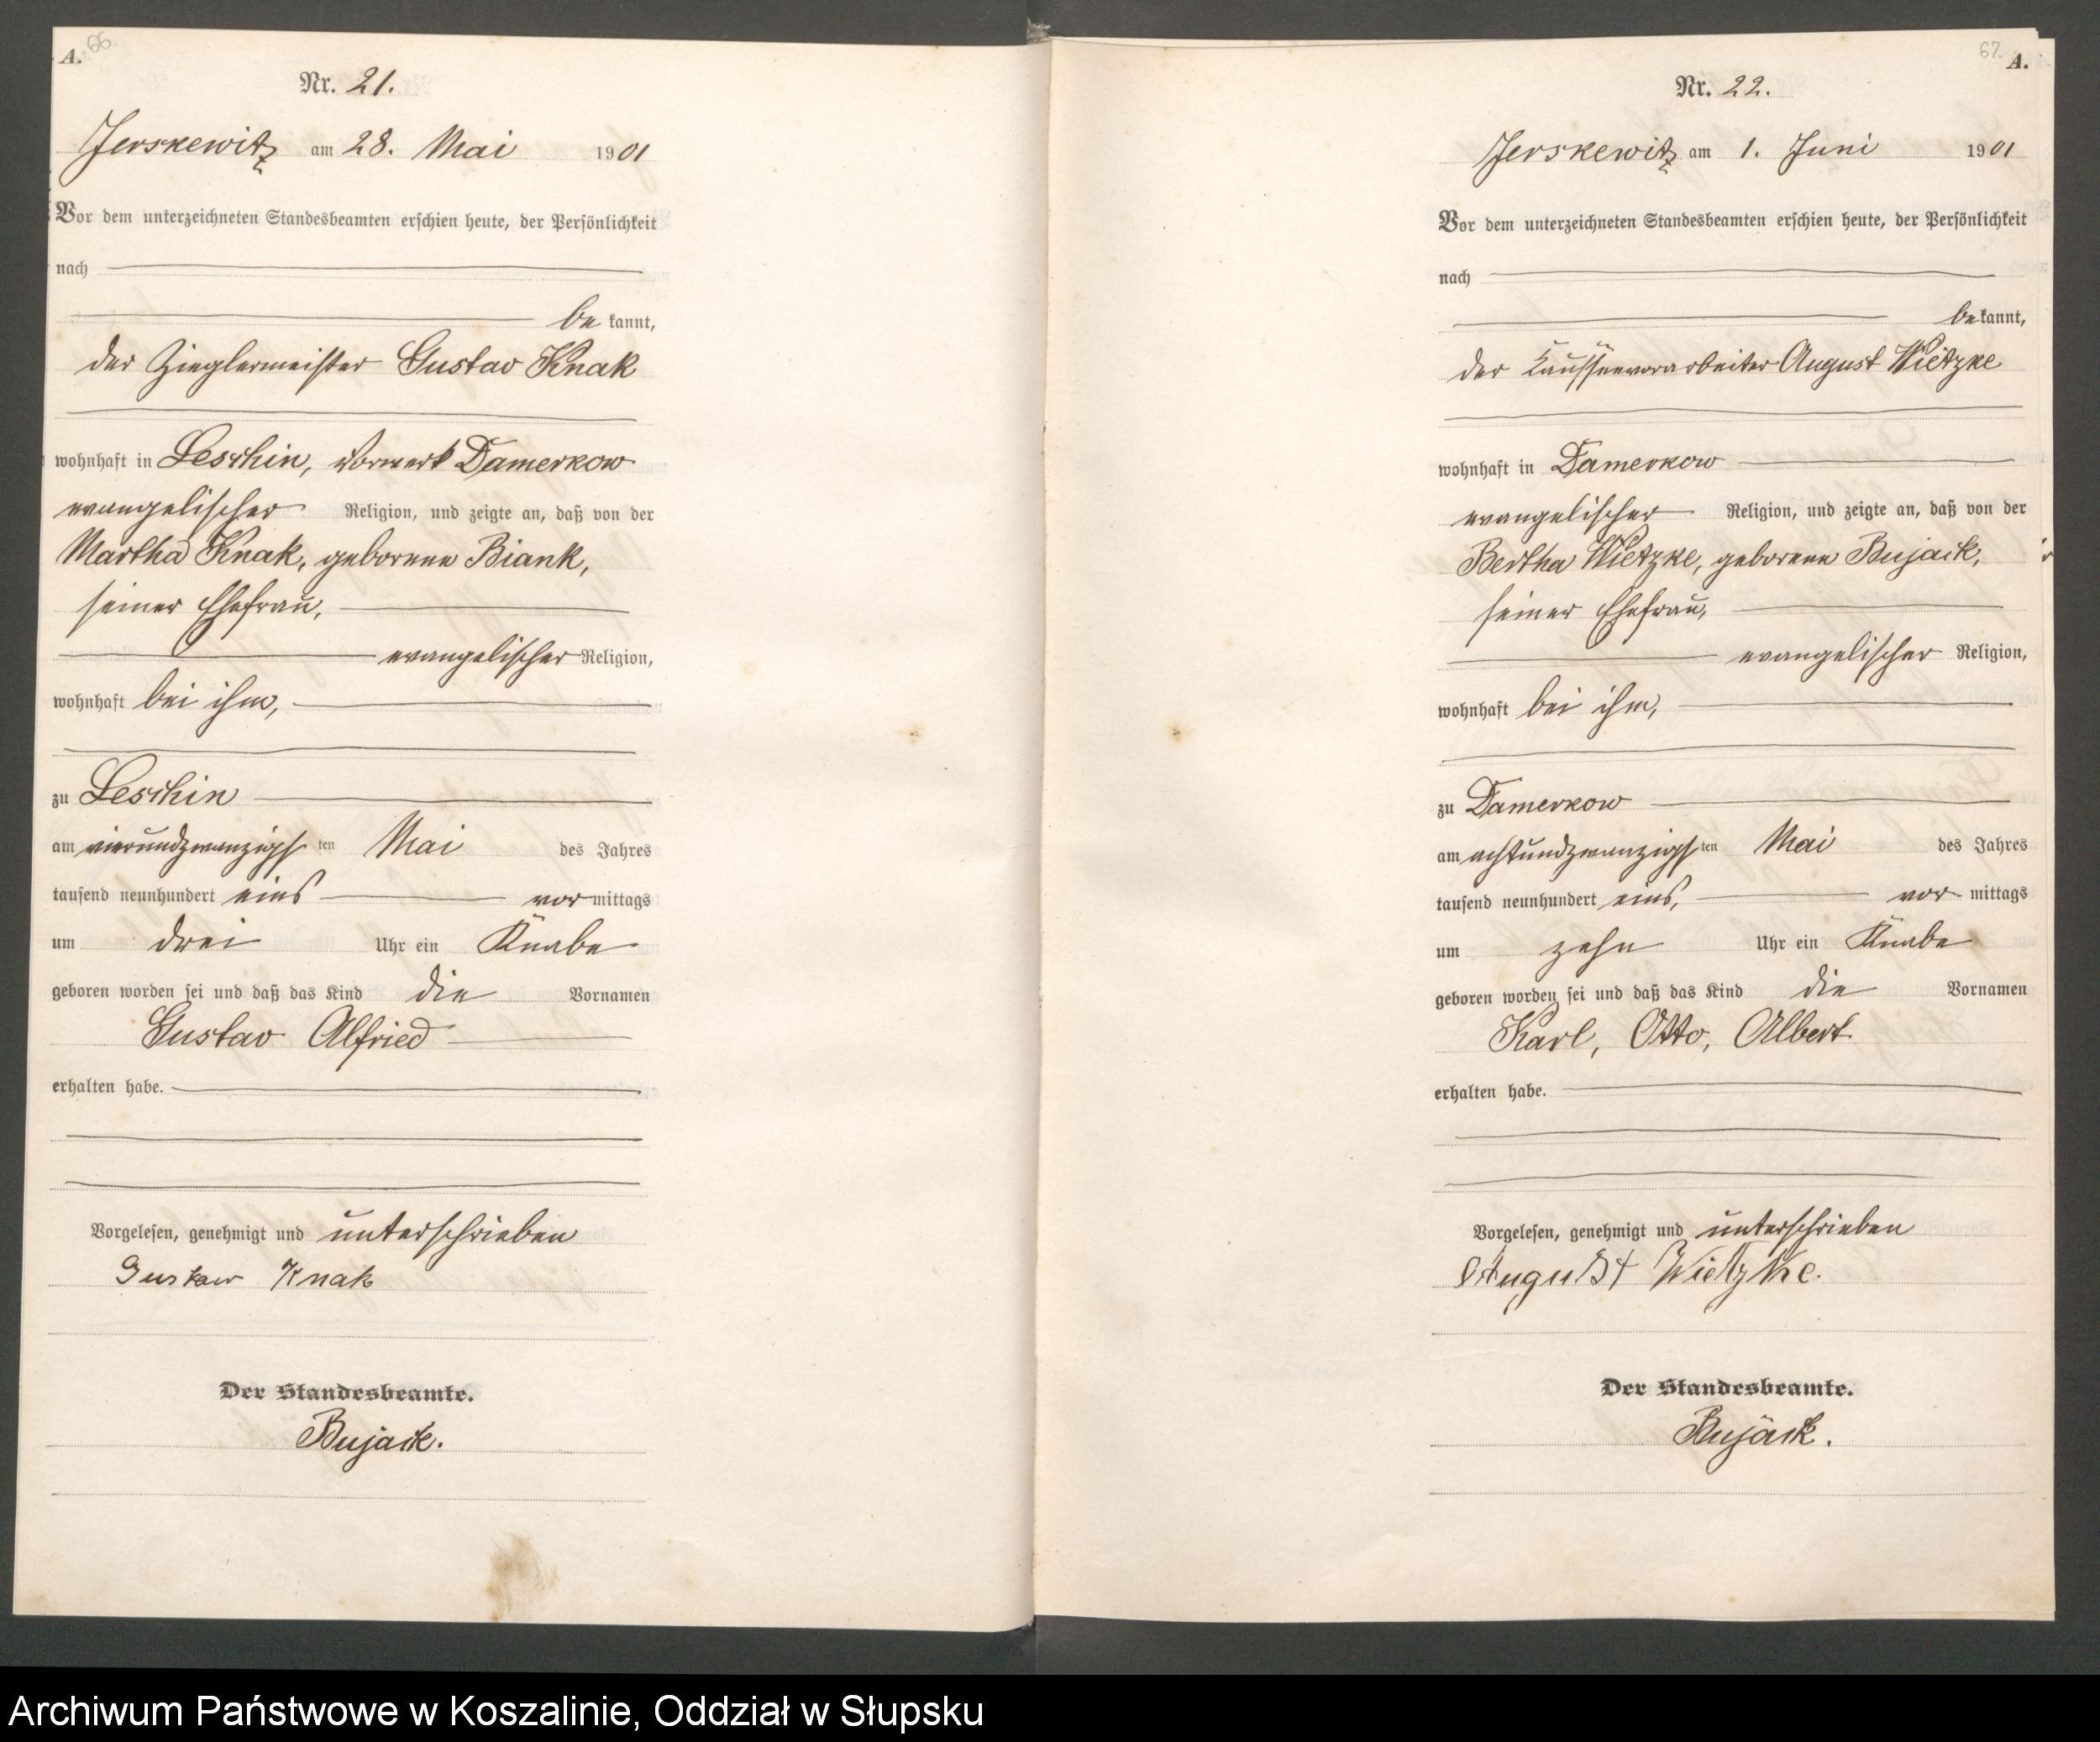 A. 66.
Nr. 21.
Jerskewitz am 28. Mai 1901
Vor dem unterzeichneten Standesbeamten erschien heute, der Persönlichkeit
nach
bekannt,
der Zieglermeister Gustav Knak
wohnhaft in Leschin, Vorwerk Damerkow
evangelischer Religion, und zeigte an, daß von der
Martha Knak, geborene Biank,
seiner Ehefrau,
evangelischer Religion,
wohnhaft bei ihm,
zu Leschin
am vierundzwanzigsten Mai des Jahres
tausend neunhundert eins vormittags
um drei Uhr ein Knabe
geboren worden sei und daß das Kind die Vornamen
Gustav Alfried
erhalten habe.
Vorgelesen, genehmigt und unterschrieben
Gustaw Knak
Der Standesbeamte.
Bujack.
67. A.
Nr. 22.
Jerskewitz am 1. Juni 1901
Vor dem unterzeichneten Standesbeamten erschien heute, der Persönlichkeit
nach
bekannt,
der August Wietzke
wohnhaft in Damerkow
evangelischer Religion, und zeigte an, daß von der
Bertha Wietzke, geborene Bujack,
seiner Ehefrau,
evangelischer Religion,
wohnhaft bei ihm,
zu Damerkow
am achtundzwanzigsten Mai des Jahres
tausend neunhundert eins, vormittags
um zehn Uhr ein Knabe
geboren worden sei und daß das Kind die Vornamen
Karl, Otto, Albert
erhalten habe.
Vorgelesen, genehmigt und unterschrieben
August Wietzke.
Der Standesbeamte.
Bujack.
Archiwum Państwowe w Koszalinie, Oddział w Słupsku